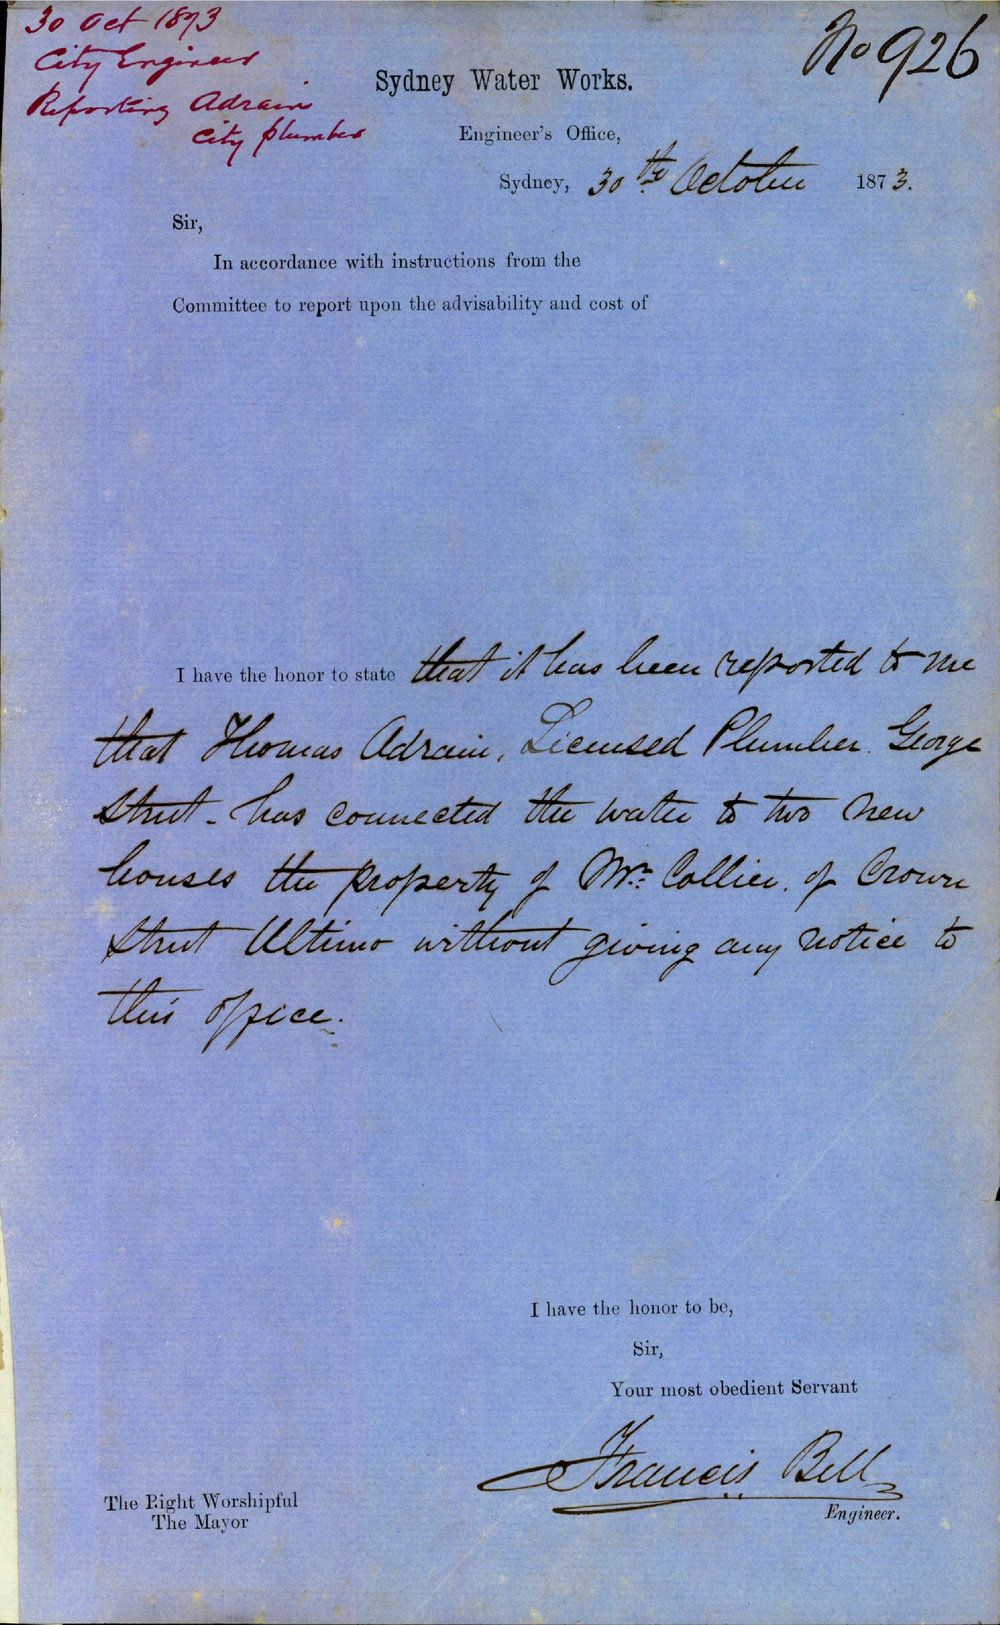 30 Oct 1873
City Engineer
Reporting Adrain
City plumber
No 926
Sydney Water Works.
Engineer's Office,
Sydney, 30th October 1873.
Sir,
In accordance with instructions from the
Committee to report upon the advisability and cost of
I have the honor to state that it has been reported to me
that Thomas Adrain, Licensed Plumber. George
Street - has connected the water to two new
houses the property of Mr. Collier. of Crown
Street Ultimo without giving any notice to
this office.
I have the honor to be,
Sir,
Your most obedient Servant
Francis Bell
Engineer.
The Right Worshipful
The Mayor